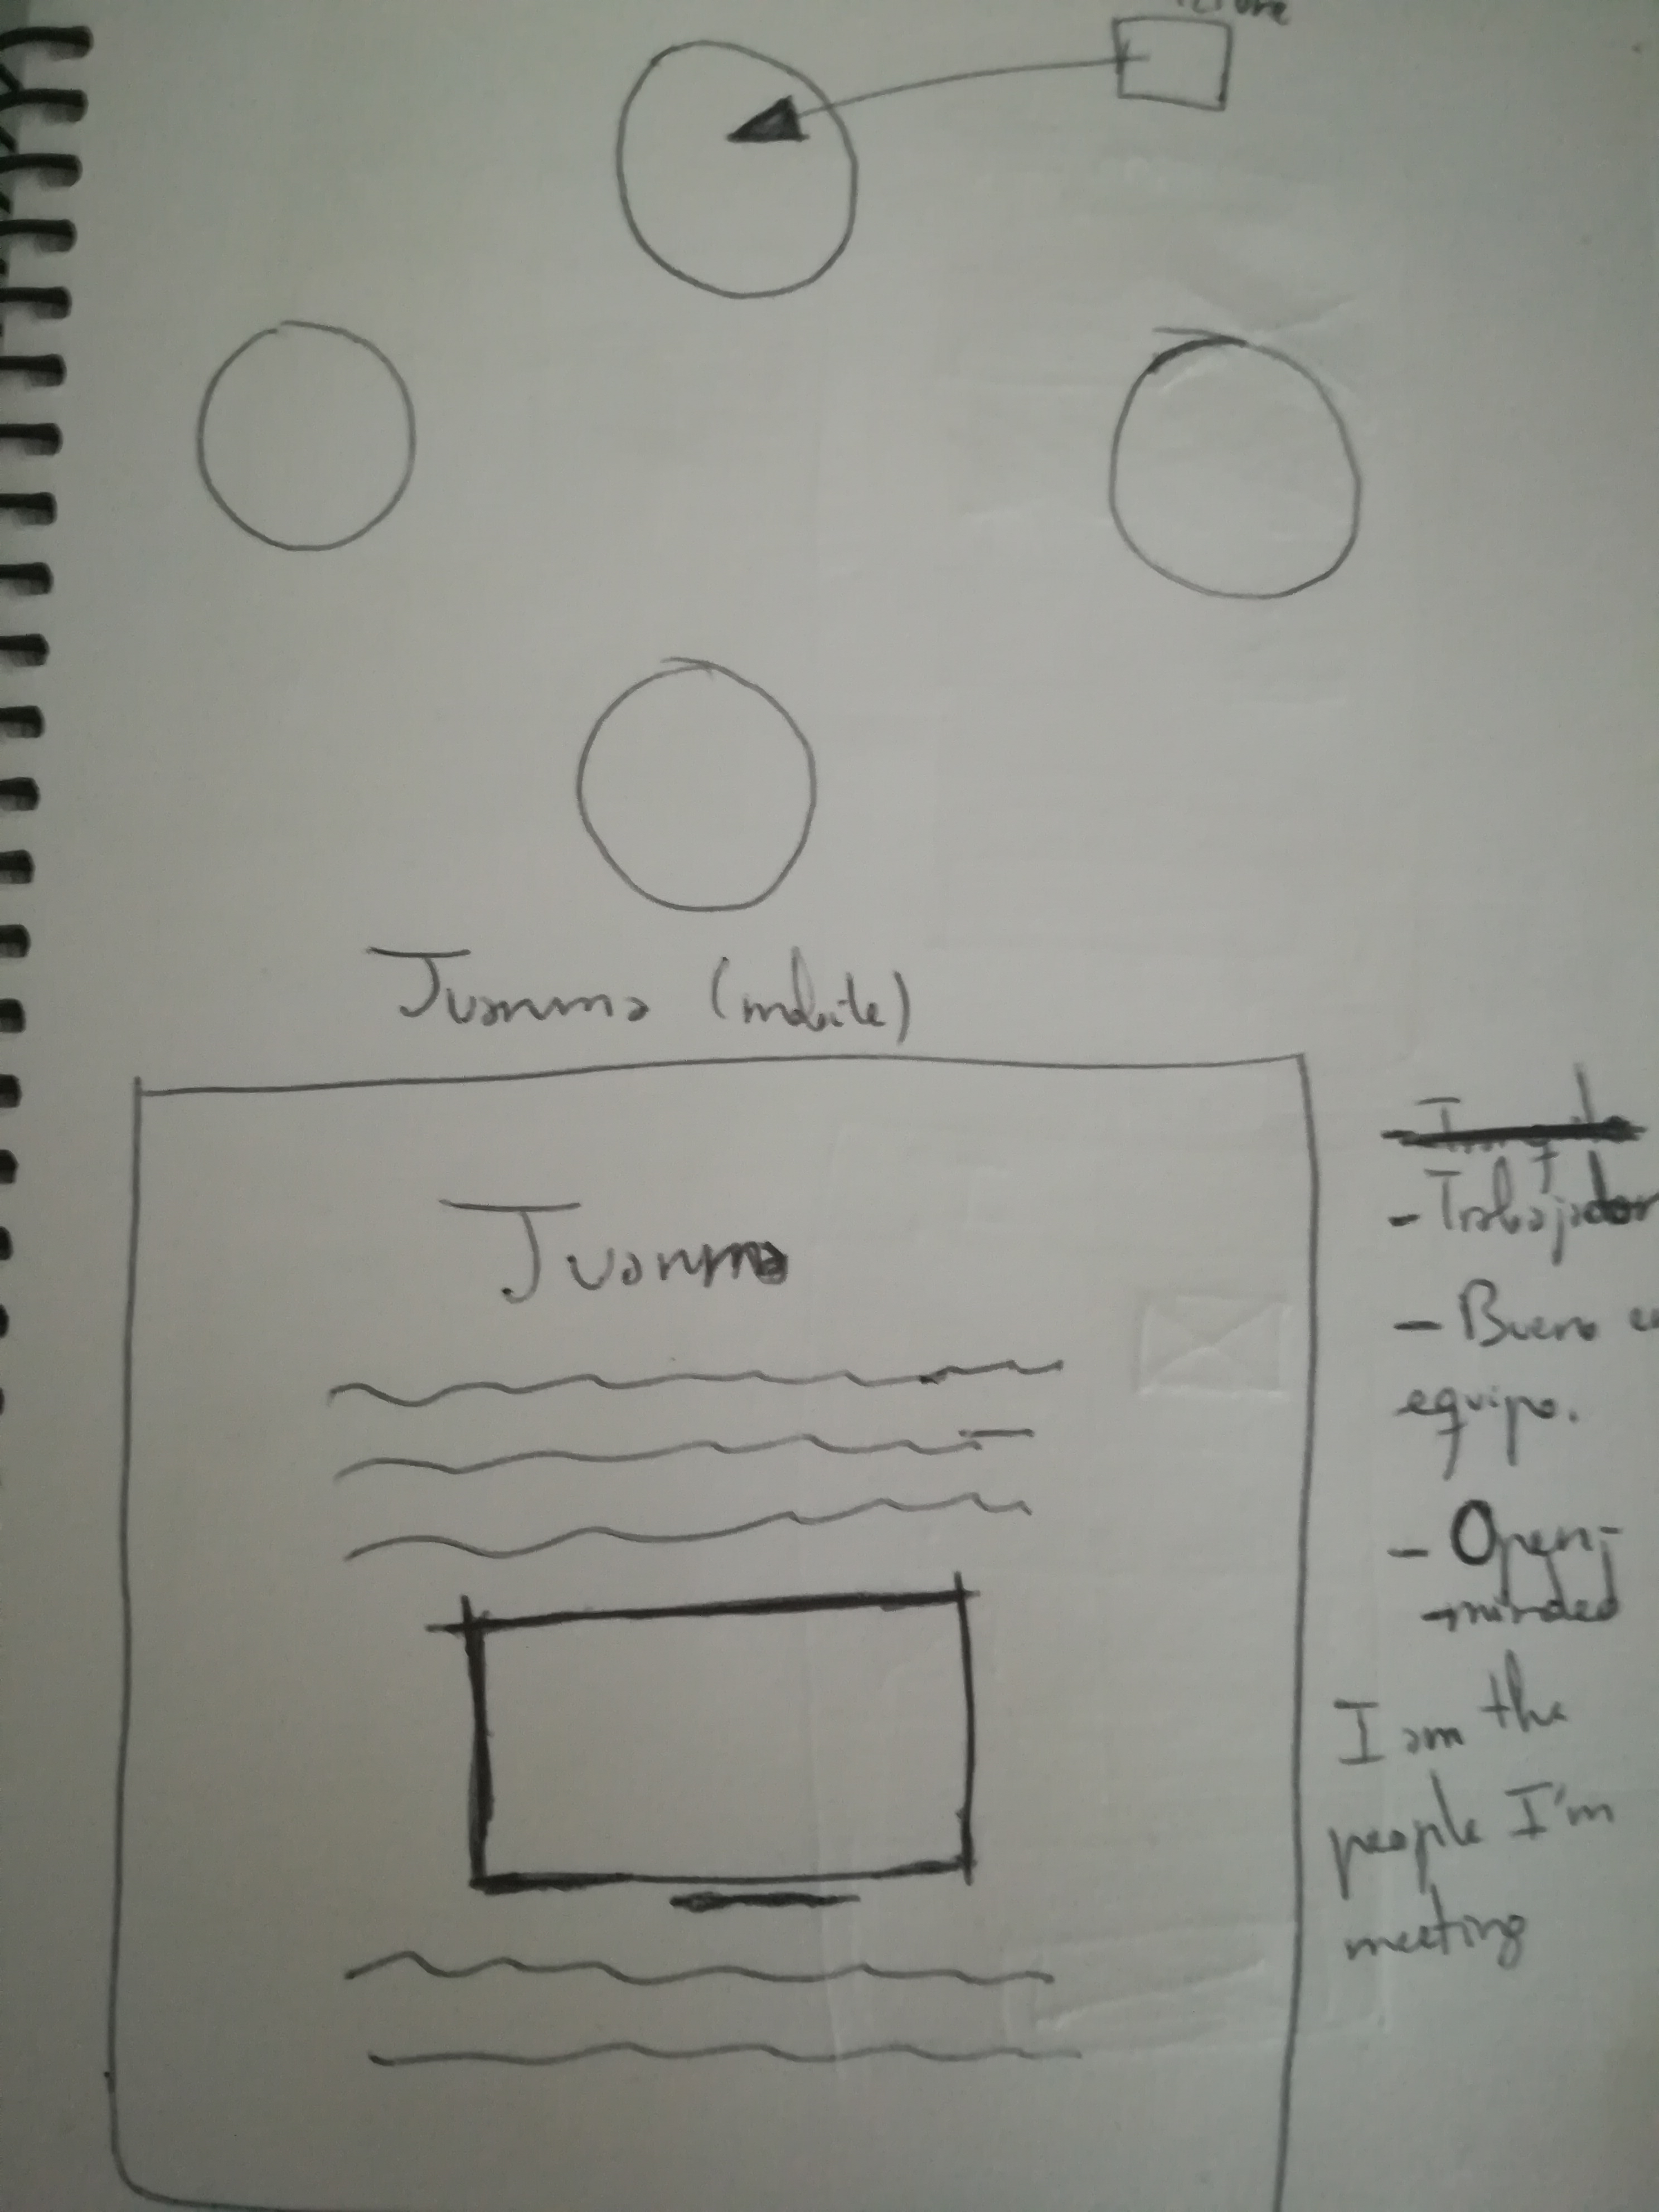 Juanma (mobile)
Juanma
- Trabajador
- Bueno en
equipo.
- Open-
-minded
I am the
people I'm
meeting